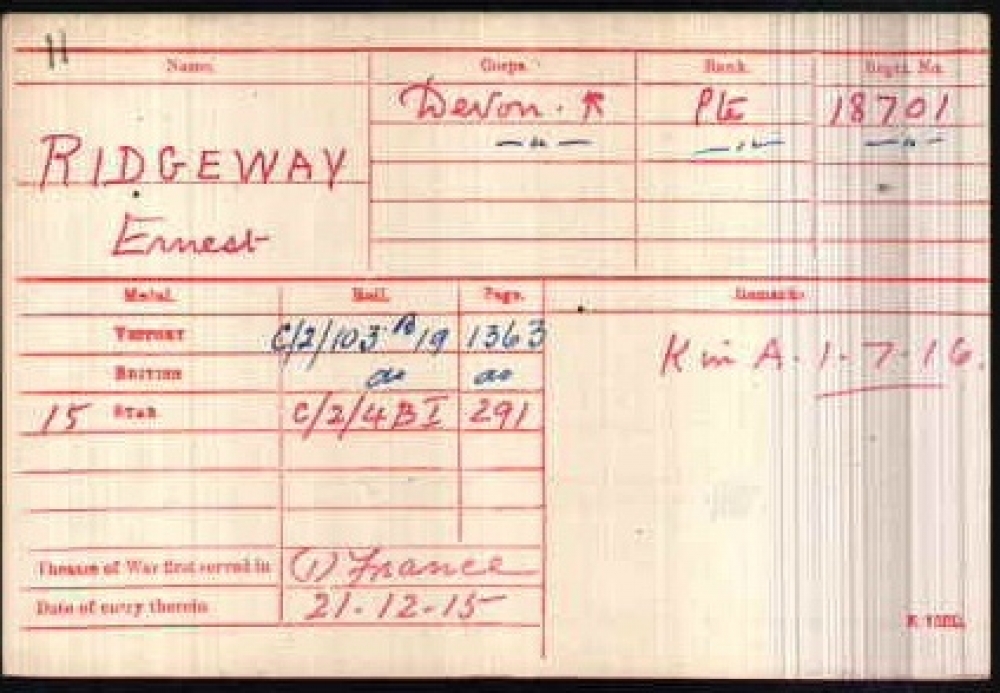 11
Name. Corps. Rank. Regtl. No.
Devon. R Pte 18701
RIDGEWAY —"— —"— —"—
Ernest
Medal. Roll. Page. Remarks
VICTORY C/2/103 B 19 1363
BRITISH do do
15 STAR C/2/4 B I 291
K in A. 1. 7. 16.
Theatre of War first served in (1) France
Date of entry therein 21.12.15